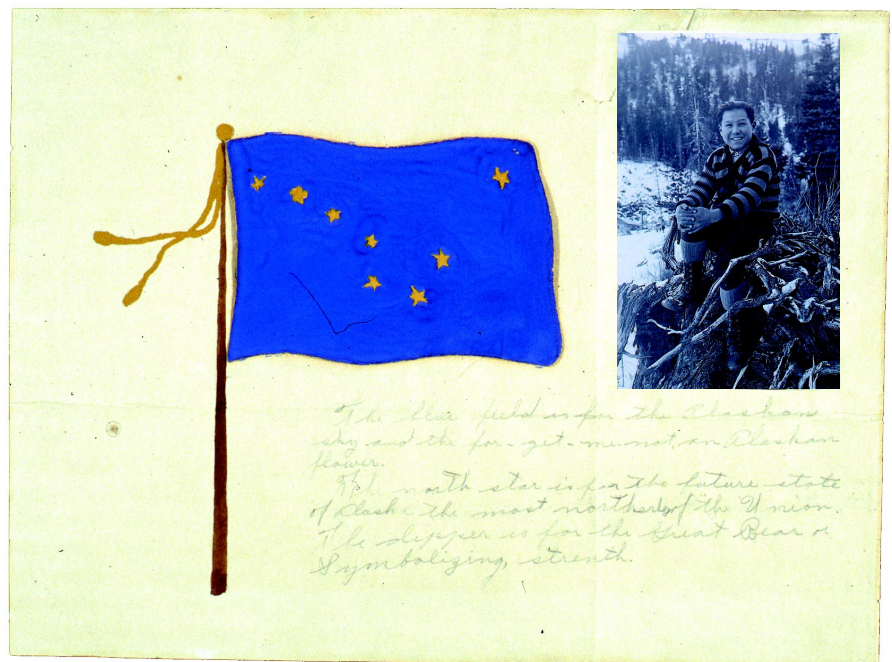 The blue field is for the Alaskan
sky and the for-get-me-not, an Alaskan
flower.
The north star is for the future state
of Alaska the most northerly of the Union.
The dipper is for the Great Bear
Symbolizing strenth.